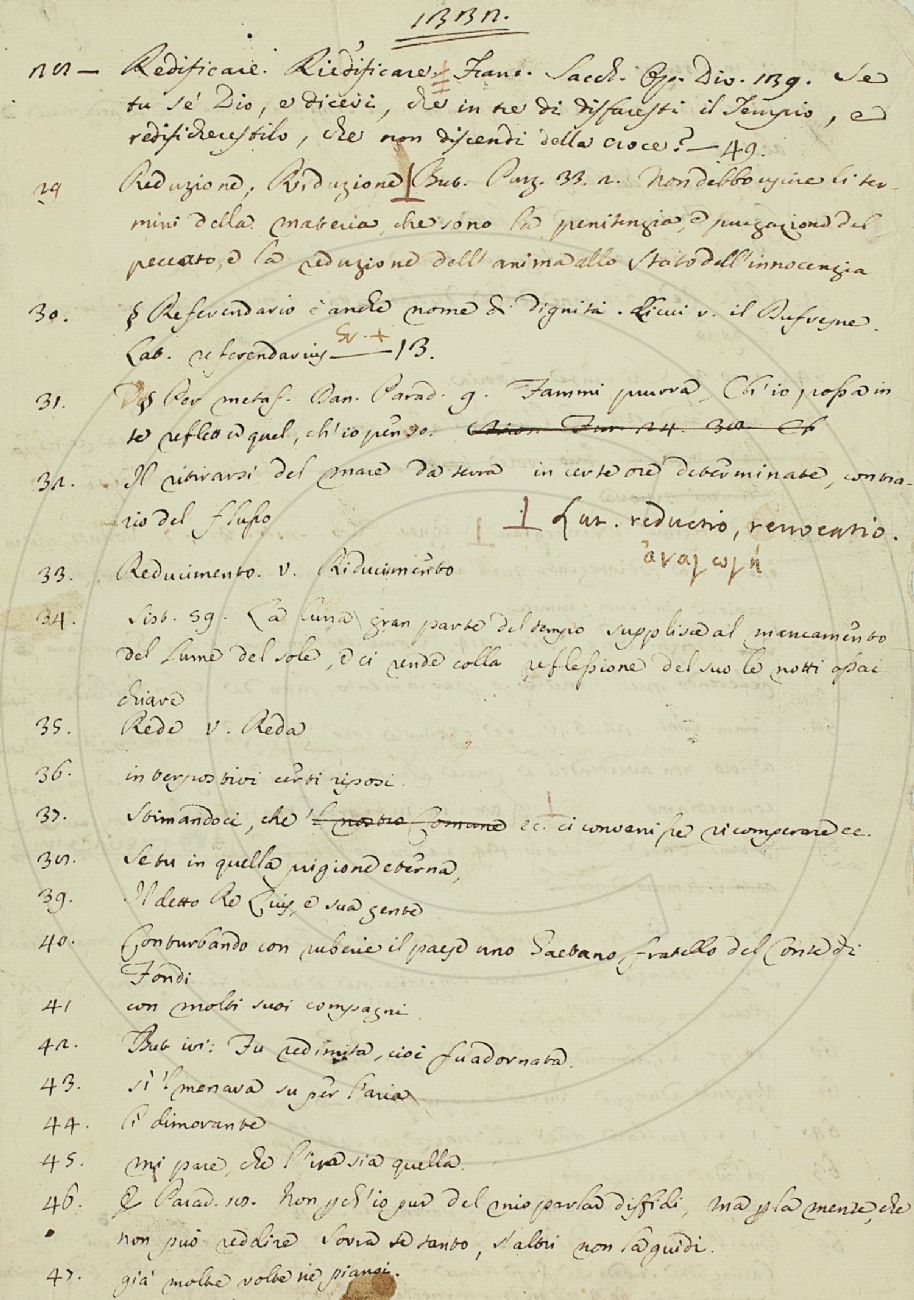 1332.
28 — Redificare. Riedificare. Franc. Sacch. Op. Div. 139. Se
tu se' Dio, e dicevi, che in tre di disfaresti il Tempio, e
redificherestilo, che non discendi della croce? — 49.
29 Reduzione, Riduzione But. Purg. 33. 2. Non debbo uscire li ter-
mini della materia, che sono la penitenzia, e purgazione del
peccato, e la reduzione dell' anima allo stato dell' innocenzia
30. § Referendario è anche nome di dignità. Di cui v. il Dufresne.
Lat. referendarius Gr. + — 13.
31. § Per metaf. Dan. Parad. 9. Fammi pruova, Ch' io possa in
te refletter quel, ch' io penso. Fur. 24. 38. Ch
32. Il ritirarsi del mare da terra in certe ore determinate, contra-
rio del flusso
⊥ Lat. reductio, revocatio.
ἀναγωγή
33. Reducimento. V. Riducimento
34. Sist. 59. La luna gran parte del tempo supplisce al mancamento
del Lume del sole, e ci rende colla reflessione del suo le notti assai
chiare
35. Rede V. Reda
36. interpostivi certi riposi
37. Stimandoci, che 'l nostro Comune ec. ci convenisse ricomperare ec.
38. Se tu in quella prigione eterna,
39. Il detto Re Luis, e sua gente
40. Conturbando con ruberie il paese uno Gaetano, fratello del Conte di
Fondi
41 con molti suoi compagni
42. But ivi: Fu redimita, cioè fu adornata.
43. sì 'l menava su per l'aria
44. lì dimorante
45. mi pare, che l'ira sia quella.
46. Parad. 18. Non perch'io pur del mio parlar diffidi, ma per la mente, che
non può reddire Sovra se tanto, s'altri non la guidi.
47. già molte volte ne piansi.